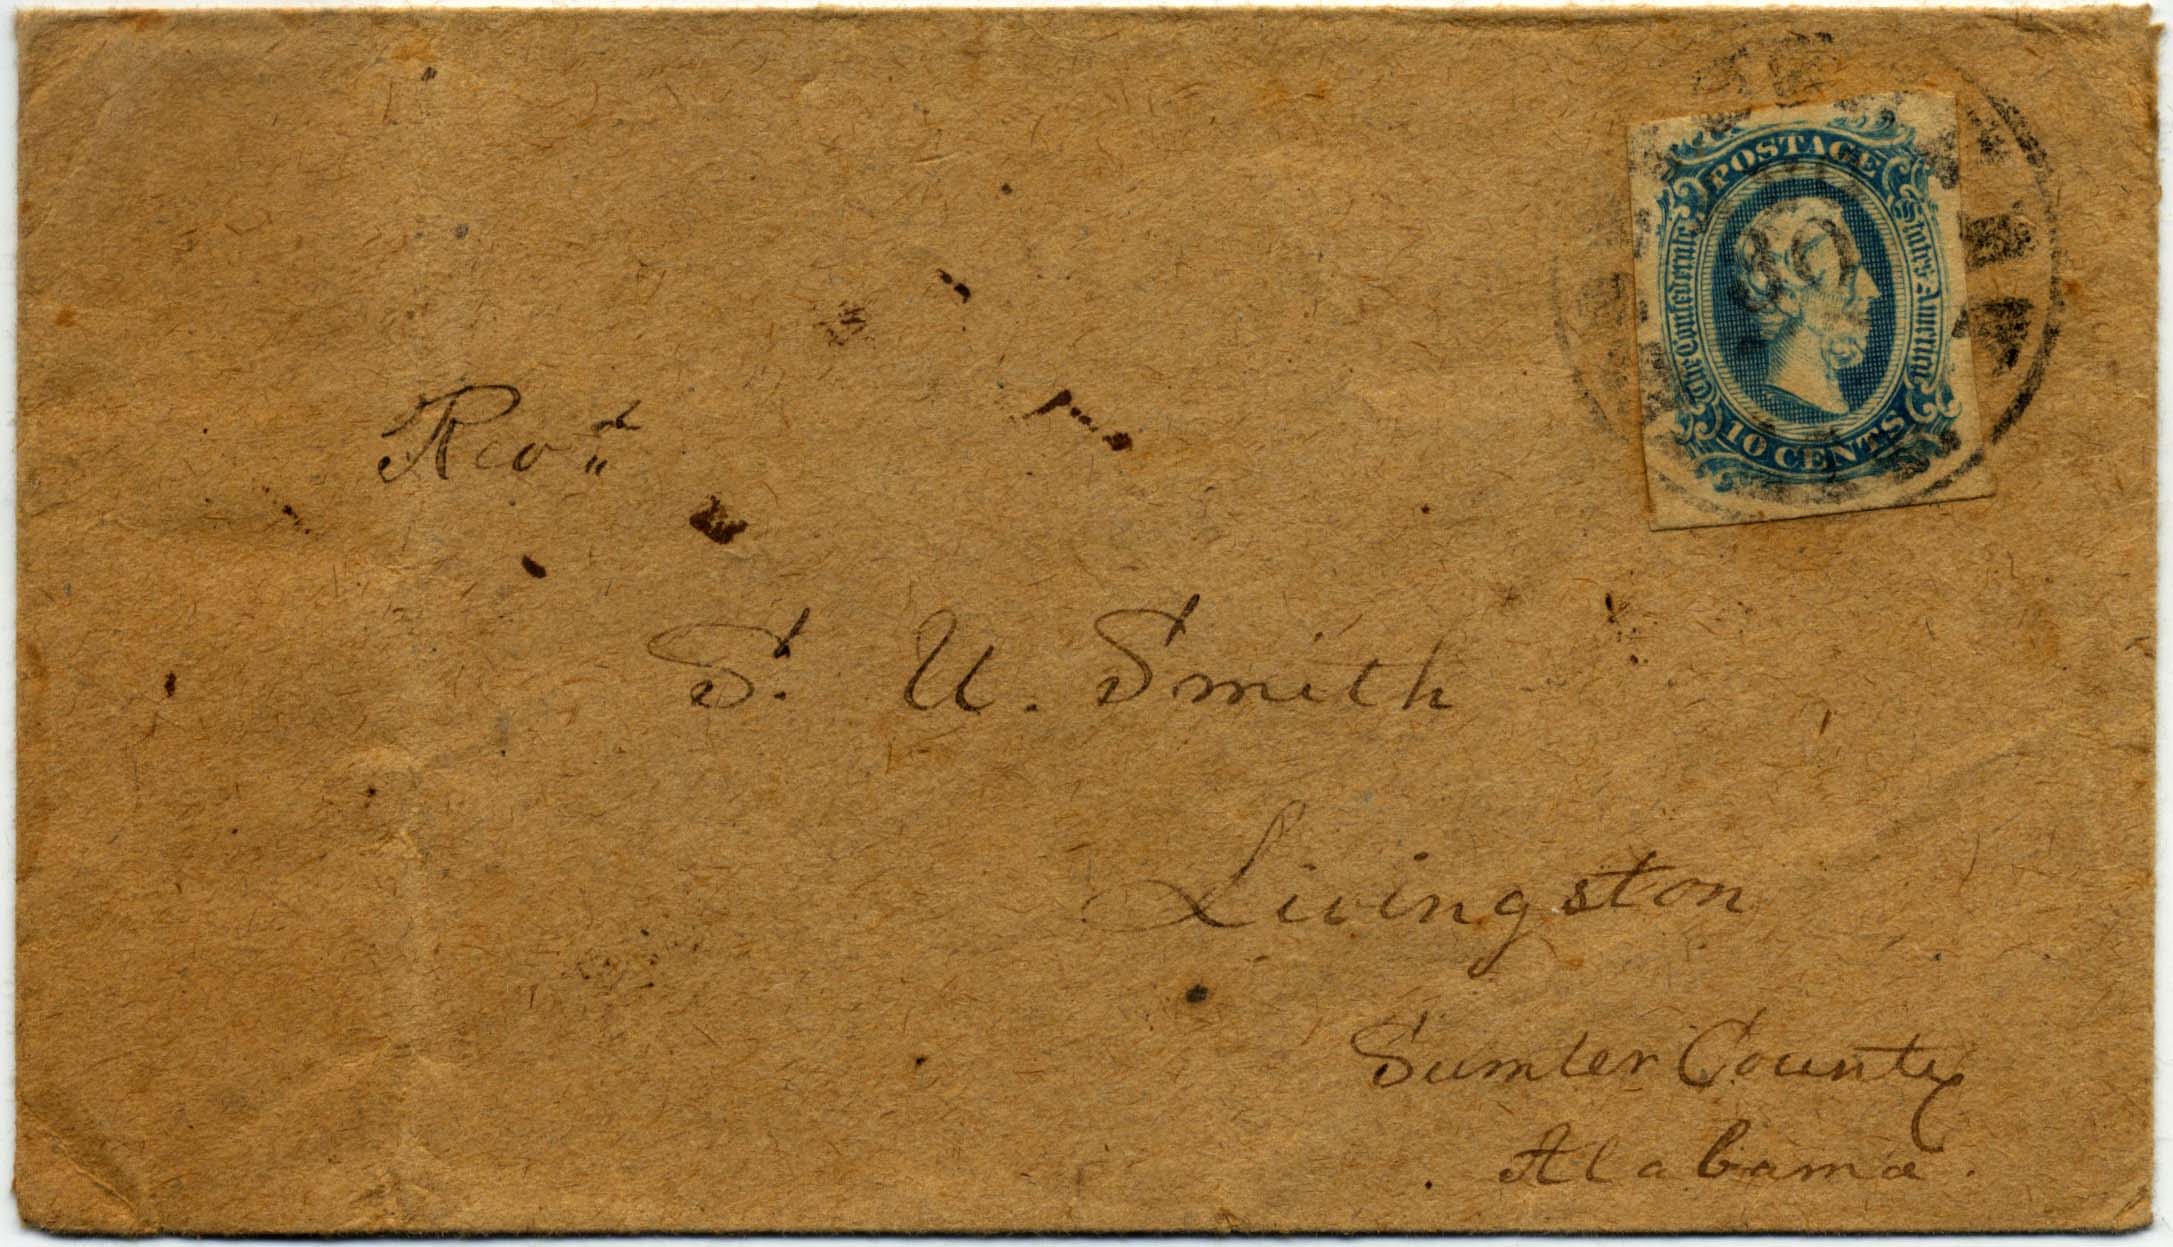 POSTAGE
The Confederate States of America
10 CENTS
Revd
S. U. Smith
Livingston
Sumter County
Alabama.